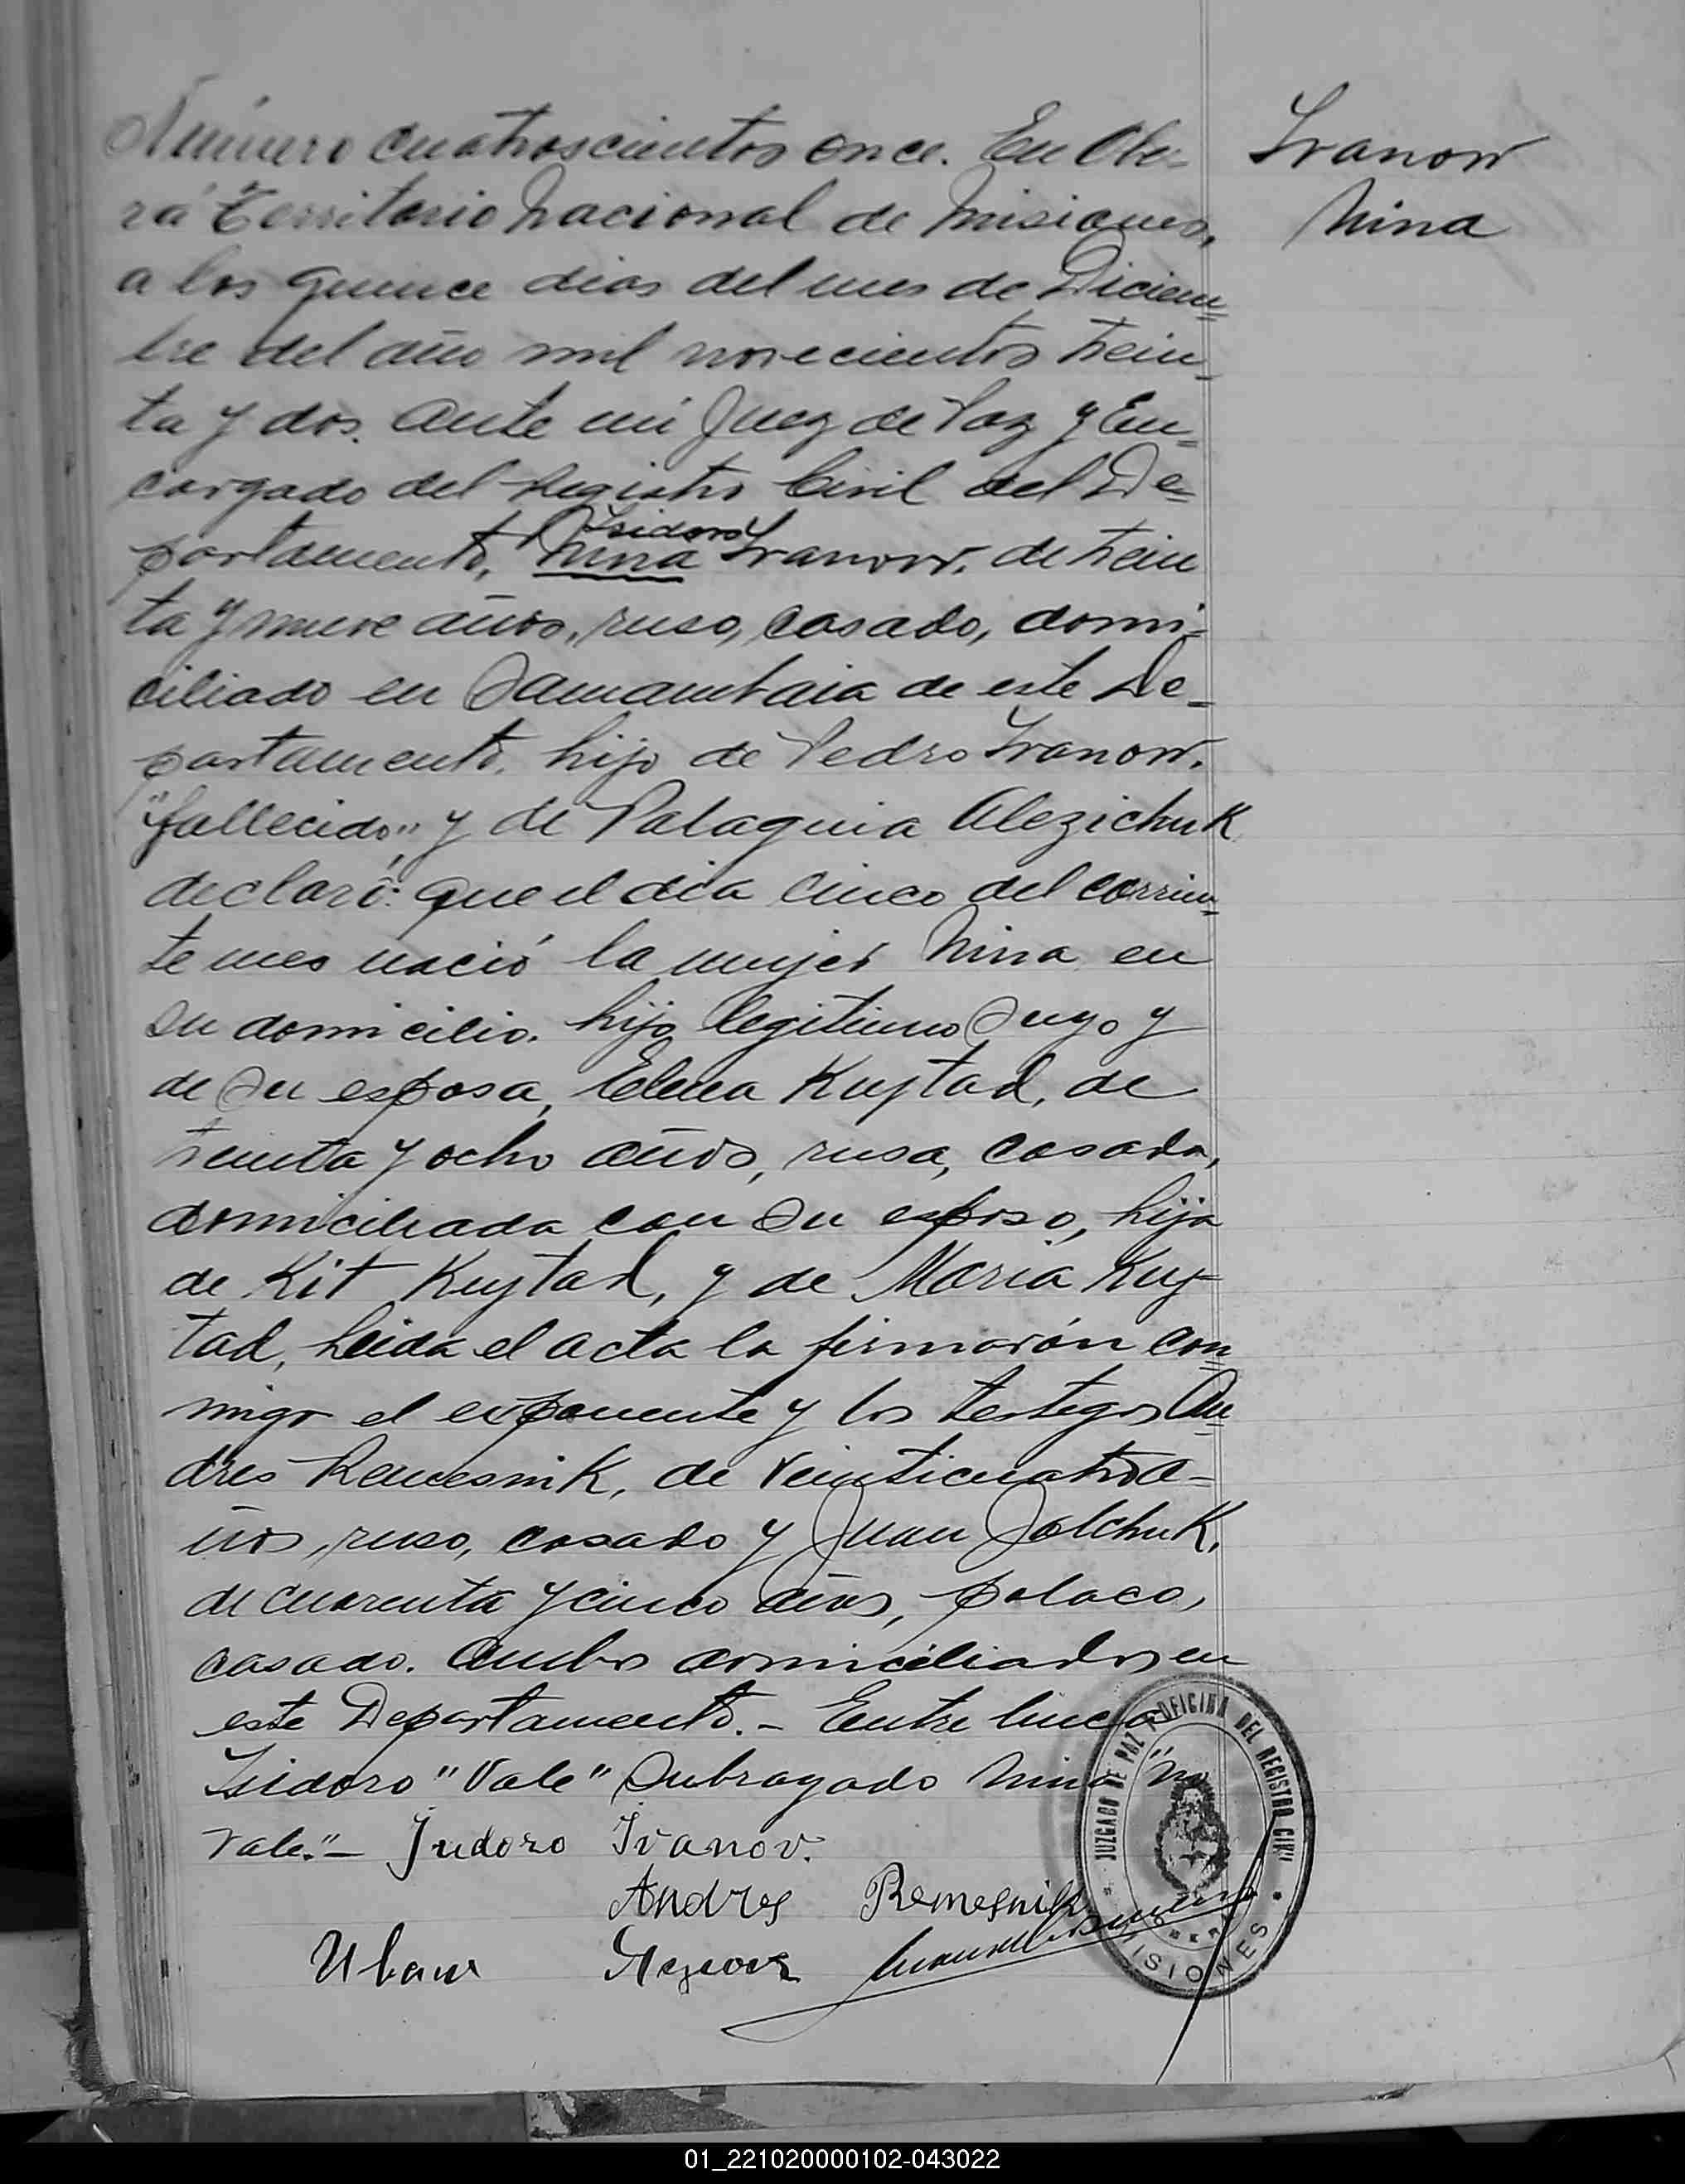 Número cuatroscientos once. En Obe-
rá Territorio Nacional de Misiones,
a los quince dias del mes de Diciem=
bre del año mil novecientos trein-
ta y dos. Ante mi Juez de Paz y En=
cargado del Registro Civil del De=
Isidoro
partamento, Nina Ivanow. de trein
ta y nueve años, ruso, casado, domi-
ciliado en Samambaia de este De-
partamento. hijo de Pedro Ivanow.
"fallecido" y de Palaguia Alezichuk
declaró: que el dia cinco del corrien=
te mes nació la mujer Nina en
su domicilio. hijo legitimo suyo y
de su esposa, Elena Kustad, de
treinta y ocho años, rusa, casada,
domiciliada con su esposo, hija
de Kit Kustad, y de Maria Kus-
tad, Leida el acta la firmarón con=
migo el exponente y los testigos An=
dres Remesnik, de veinticuatro a-
ños, ruso, casado y Juan Jolchuk,
de cuarenta y cinco años, polaco,
casado. Ambos domiciliados en
este Departamento.- Entre linea
Isidoro "Vale" Subrayado Nina "no
vale."-
Isidoro Ivanov.
Andres Remesnik
Ivanow
Nina
JUZGADO DE PAZ Y OFICINA DEL REGISTRO CIVIL
MISIONES
01_221020000102-043022